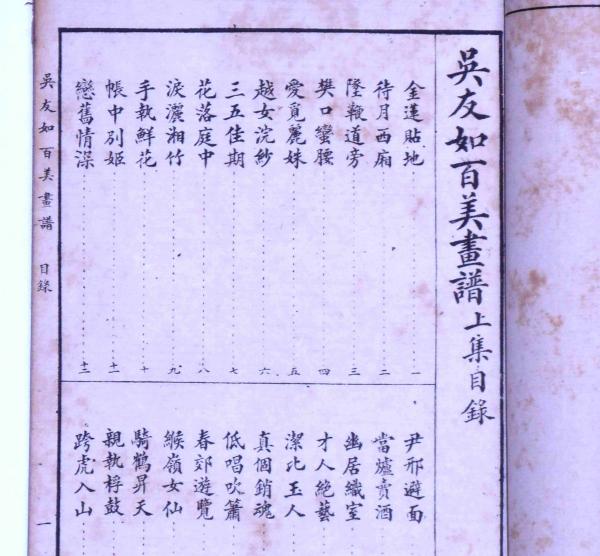 吳友如百美畫譜上集目錄
金蓮貼地 一
待月西廂 二
墮鞭道旁 三
樊口蠻腰 四
愛覓麗姝 五
越女浣紗 六
三五佳期 七
花落庭中 八
淚灑湘竹 九
手執鮮花 十
帳中別姬 十一
戀舊情深 十二
尹邢避面
當爐賣酒
幽居織室
才人絕藝
潔比玉人
真個銷魂
低唱吹簫
春郊遊覽
緱嶺女仙
騎鶴昇天
親執桴鼓
跨虎入山
吳友如百美畫譜 目錄 一